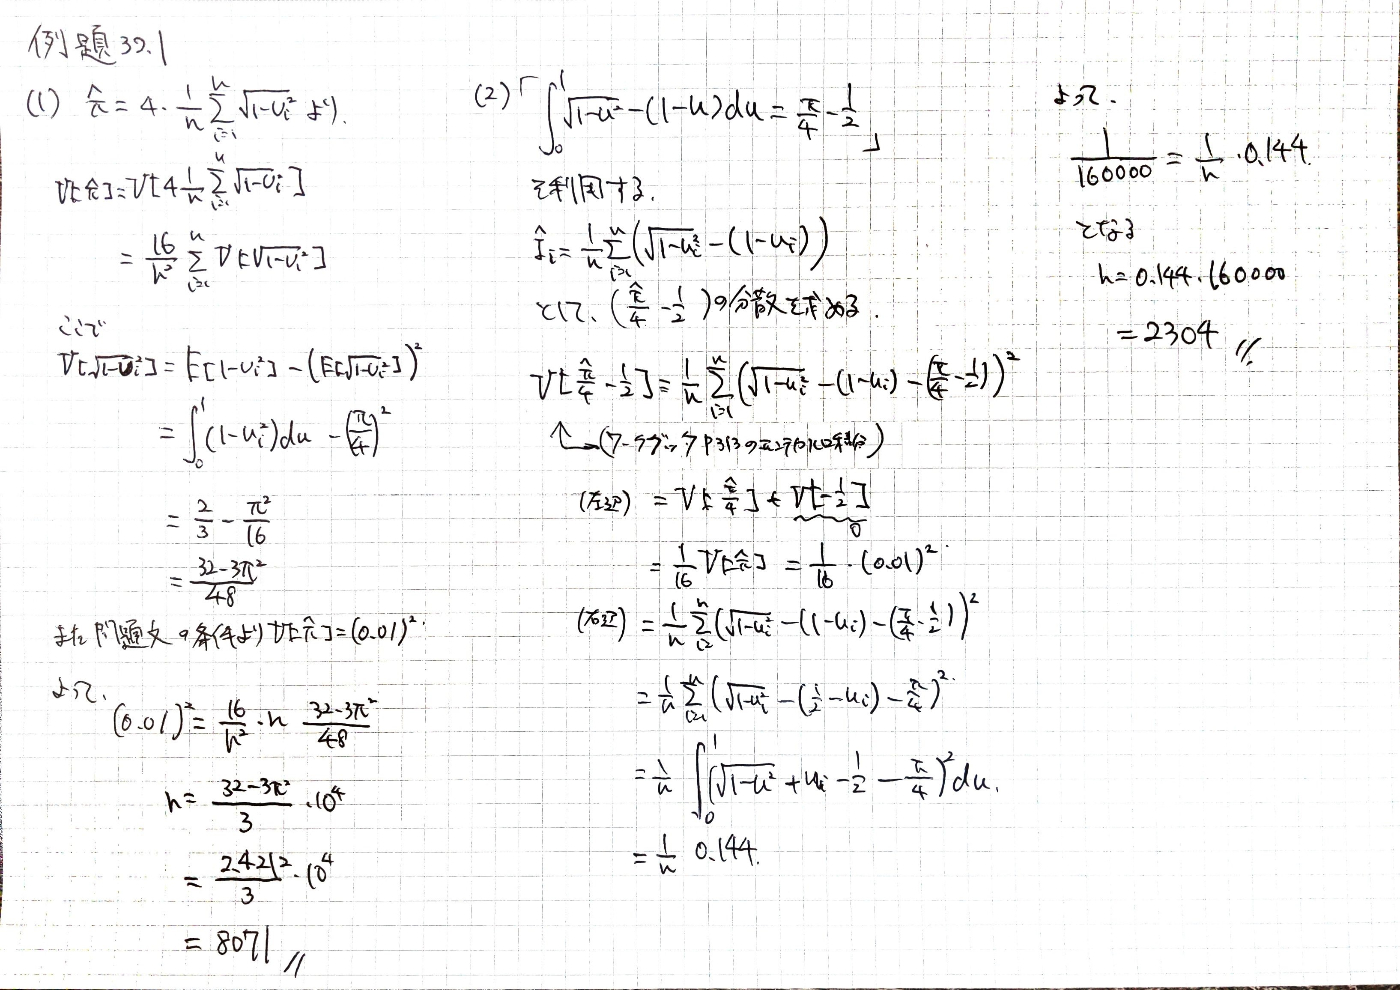 例題30.1
(1) π̂ = 4・1/n Σ_{i=1}^{n} √(1-U_i²) より.
V[π̂] = V[4 1/n Σ_{i=1}^{n} √(1-U_i²)]
= 16/n² Σ_{i=1}^{n} V[√(1-U_i²)]
ここで
V[√(1-U_i²)] = E[1-U_i²] - (E[√(1-U_i²)])²
= ∫_0^1 (1-u_i²)du - (π/4)²
= 2/3 - π²/16
= (32-3π²)/48
また問題文の条件より V[π̂] = (0.01)².
よって.
(0.01)² = 16/n² ・n (32-3π²)/48
n = (32-3π²)/3 ・10⁴
= 2.4212/3 ・10⁴
= 8071 //
(2)「∫_0^1 √(1-u²) - (1-u)du = π/4 - 1/2」
を利用する.
Î_i = 1/n Σ_{i=1}^{n} (√(1-u_i²) - (1-u_i))
として、(π̂/4 - 1/2)の分散を求める.
V[π̂/4 - 1/2] = 1/n Σ_{i=1}^{n} (√(1-u_i²) - (1-u_i) - (π/4 - 1/2))²
(ワークブック P313の
(左辺) = V[π̂/4] + V[-1/2]
0
= 1/16 V[π̂] = 1/16 ・(0.01)².
(右辺) = 1/n Σ_{i=1}^{n} (√(1-u_i²) - (1-u_i) - (π/4 - 1/2))²
= 1/n Σ_{i=1}^{n} (√(1-u_i²) - (1/2 - u_i) - π/4)².
= 1/n ∫_0^1 (√(1-u²) + u_i - 1/2 - π/4)² du.
= 1/n 0.144.
よって.
1/160000 = 1/n ・0.144.
となる
n = 0.144・160000
= 2304 //